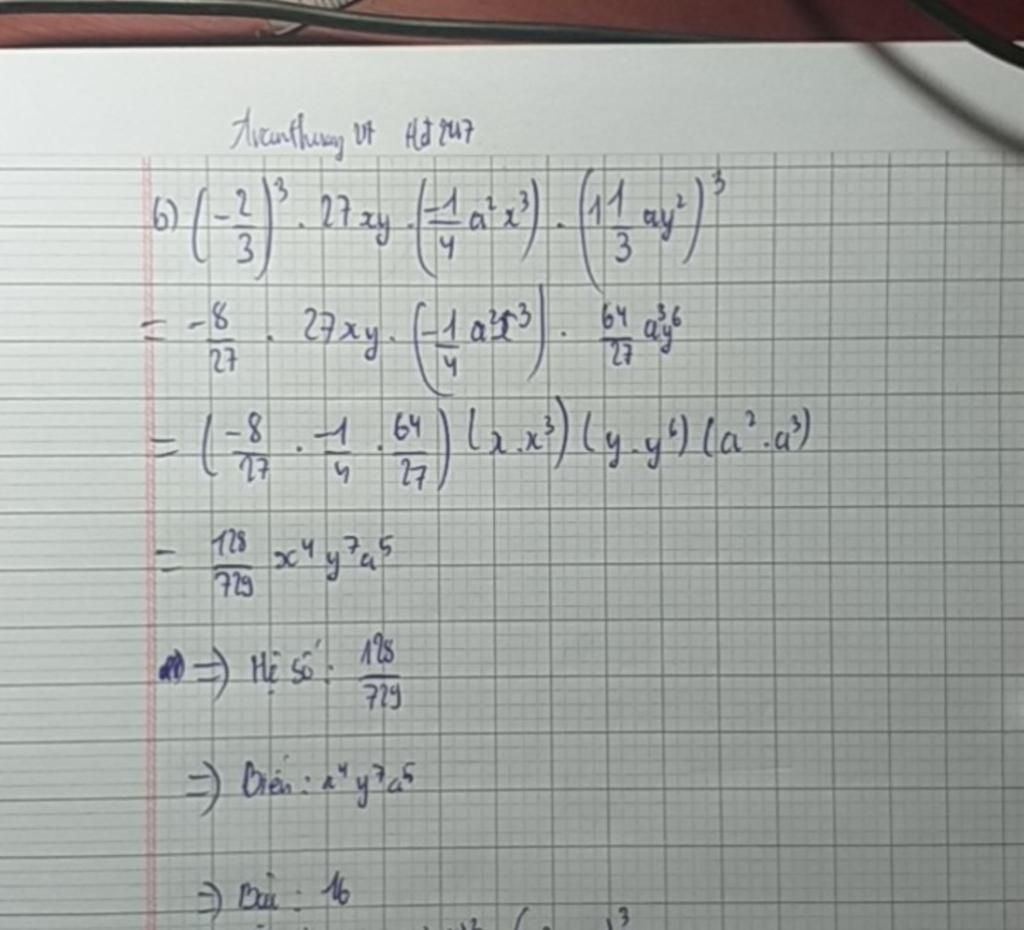 Avanthuong VA Hd 247
b) (-2/3)³ . 27xy . (-1/4 a²x³) . (1 1/3 ay²)³
= -8/27 . 27xy . (-1/4 a²x³) . 64/27 a³y⁶
= (-8/27 . -1/4 . 64/27) (x.x³) (y.y⁶) (a².a³)
= 128/729 x⁴y⁷a⁵
=> Hệ số : 128/729
=> Biến : x⁴y⁷a⁵
=> Bậc : 16